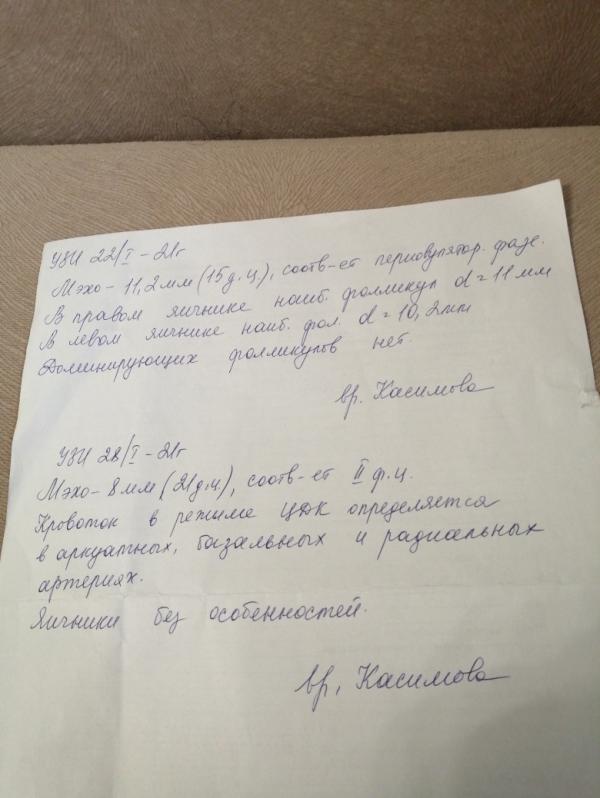 УЗИ 22/I - 21г
Мэхо - 11,2мм (15 д.ц.), соотв-ет периовулятор. фазе.
В правом яичнике наиб. фолликул d = 11 мм
В левом яичнике наиб. фол. d = 10,2мм
Доминирующих фолликулов нет.
вр. Касимова
УЗИ 28/I - 21г
Мэхо - 8 мм (21 д.ц.), соотв-ет II ф.ц.
Кровоток в режиме ЦДК определяется
в аркуатных, базальных и радиальных
артериях.
Яичники без особенностей.
вр. Касимова